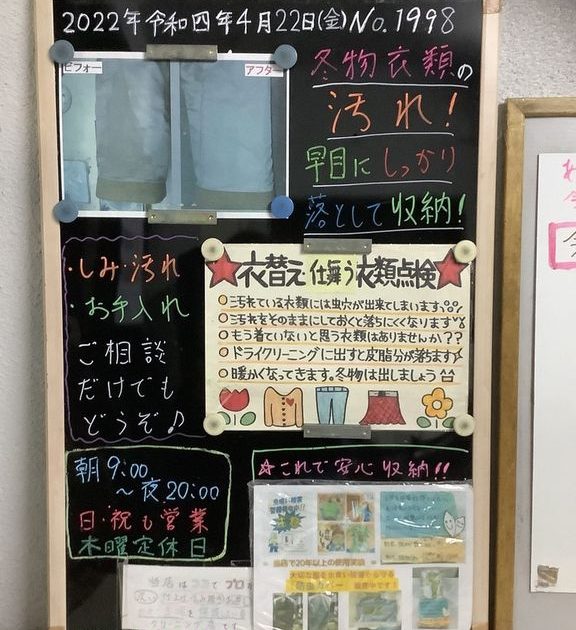 2022年令和四年4月22日(金)No.1998
ビフォー
アフター
冬物衣類の
汚れ!
早目にしっかり
落として収納!
・しみ・汚れ
・お手入れ
ご相談
だけでも
どうぞ♪
衣替え・仕舞う衣類点検
汚れている衣類には虫穴が出来てしまいます
汚れをそのままにしておくと落ちにくくなります
もう着ていないと思う衣類はありませんか??
ドライクリーニングに出すと皮脂分が落ちます
暖かくなってきます。冬物は出しましょう
朝9:00
～夜20:00
日・祝も営業
木曜定休日
☆これで安心収納!!
当店で20年以上の使用実績